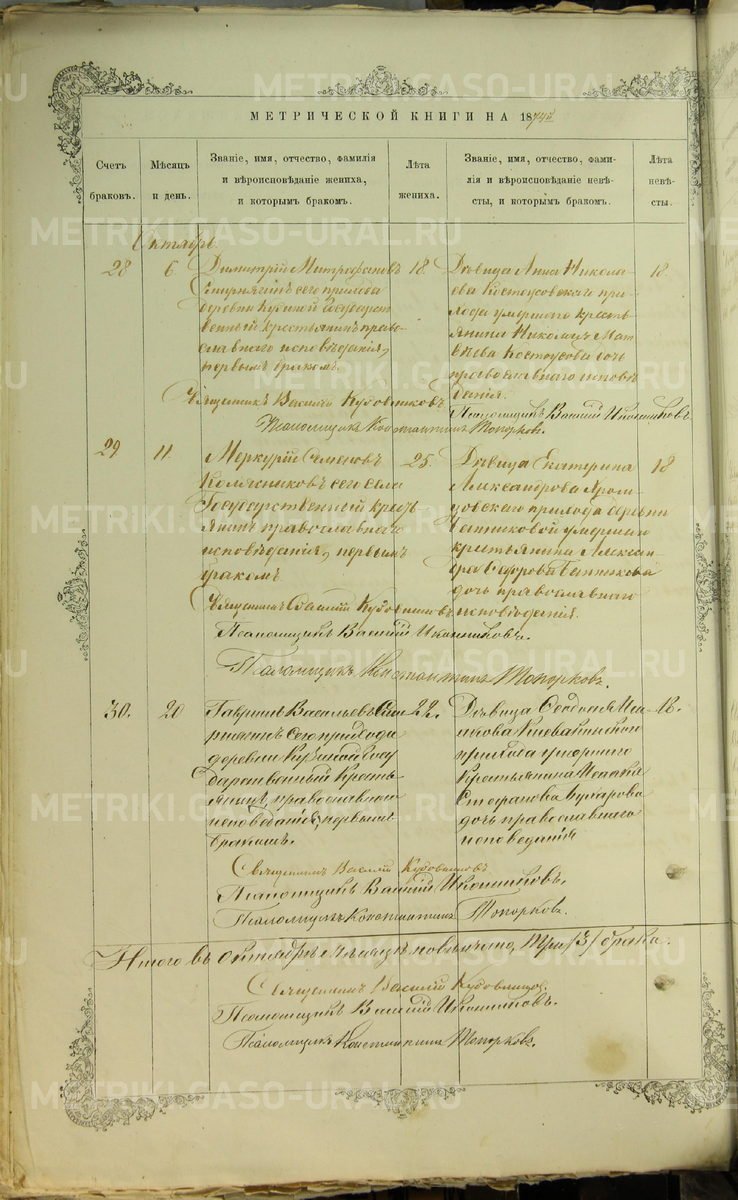 МЕТРИЧЕСКОЙ КНИГИ НА 18
Счетъ браковъ.
Мѣсяцъ и день.
Званіе, имя, отчество, фамилія
и вѣроисповѣданіе жениха,
и которымъ бракомъ.
Лѣта жениха.
Званіе, имя, отчество, фами-
лія и вѣроисповѣданіе невѣ-
сты, и которымъ бракомъ.
Лѣта невѣ-
сты.
Октябрь
28
6
Димитрій Митрофановъ
сего прихода
деревни Государст
венный крестьянинъ право-
славнаго исповѣданія,
первымъ бракомъ.
18.
Дѣвица Анна Никола
ева Костоусовскаго при-
хода умершаго кресть
янина Николая Мат
вѣева Костоусова дочь
православнаго исповѣ
данія.
18.
Священникъ Василій
Псаломщикъ Василій Иконниковъ
Псаломщикъ Константинъ Топорковъ.
29
11.
Меркурій Семеновъ
сего села
Государственный кресть
янинъ православнаго
исповѣданія, первымъ
бракомъ.
25.
Дѣвица Екатерина
Александрова
прихода деревни
умершаго
крестьянина Алексан
дра
дочь православнаго
исповѣданія.
18
Священникъ Василій
Псаломщикъ Василій Иконниковъ.
Псаломщикъ Константинъ Топорковъ.
30.
20
Гавріилъ Васильевъ
сего прихода
деревни Госу
дарственный Кресть
янинъ, православнаго
исповеданія, первымъ
бракомъ.
22.
Дѣвица Феодосія
прихода умершаго
Крестьянина
Стефанова
дочь православнаго
исповеданія
18.
Священникъ Василій
Псаломщикъ Василій Иконниковъ.
Псаломщикъ Константинъ Топорковъ.
Итого въ Октябрѣ мѣсяцѣ повѣнчано, три /3/ брака.
Священникъ Василій
Псаломщикъ Василій Иконниковъ.
Псаломщикъ Константинъ Топорковъ.
METRIKI.GASO-URAL.RU